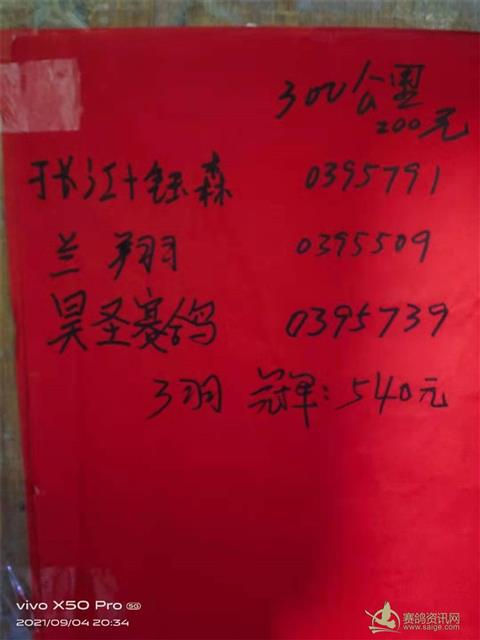 300公里
200元
张江+钰森 0395791
兰翔 0395509
昊圣赛鸽 0395739
3羽 冠军:540元
vivo X50 Pro 5G
2021/09/04 20:34
赛鸽资讯网
www.saige.com